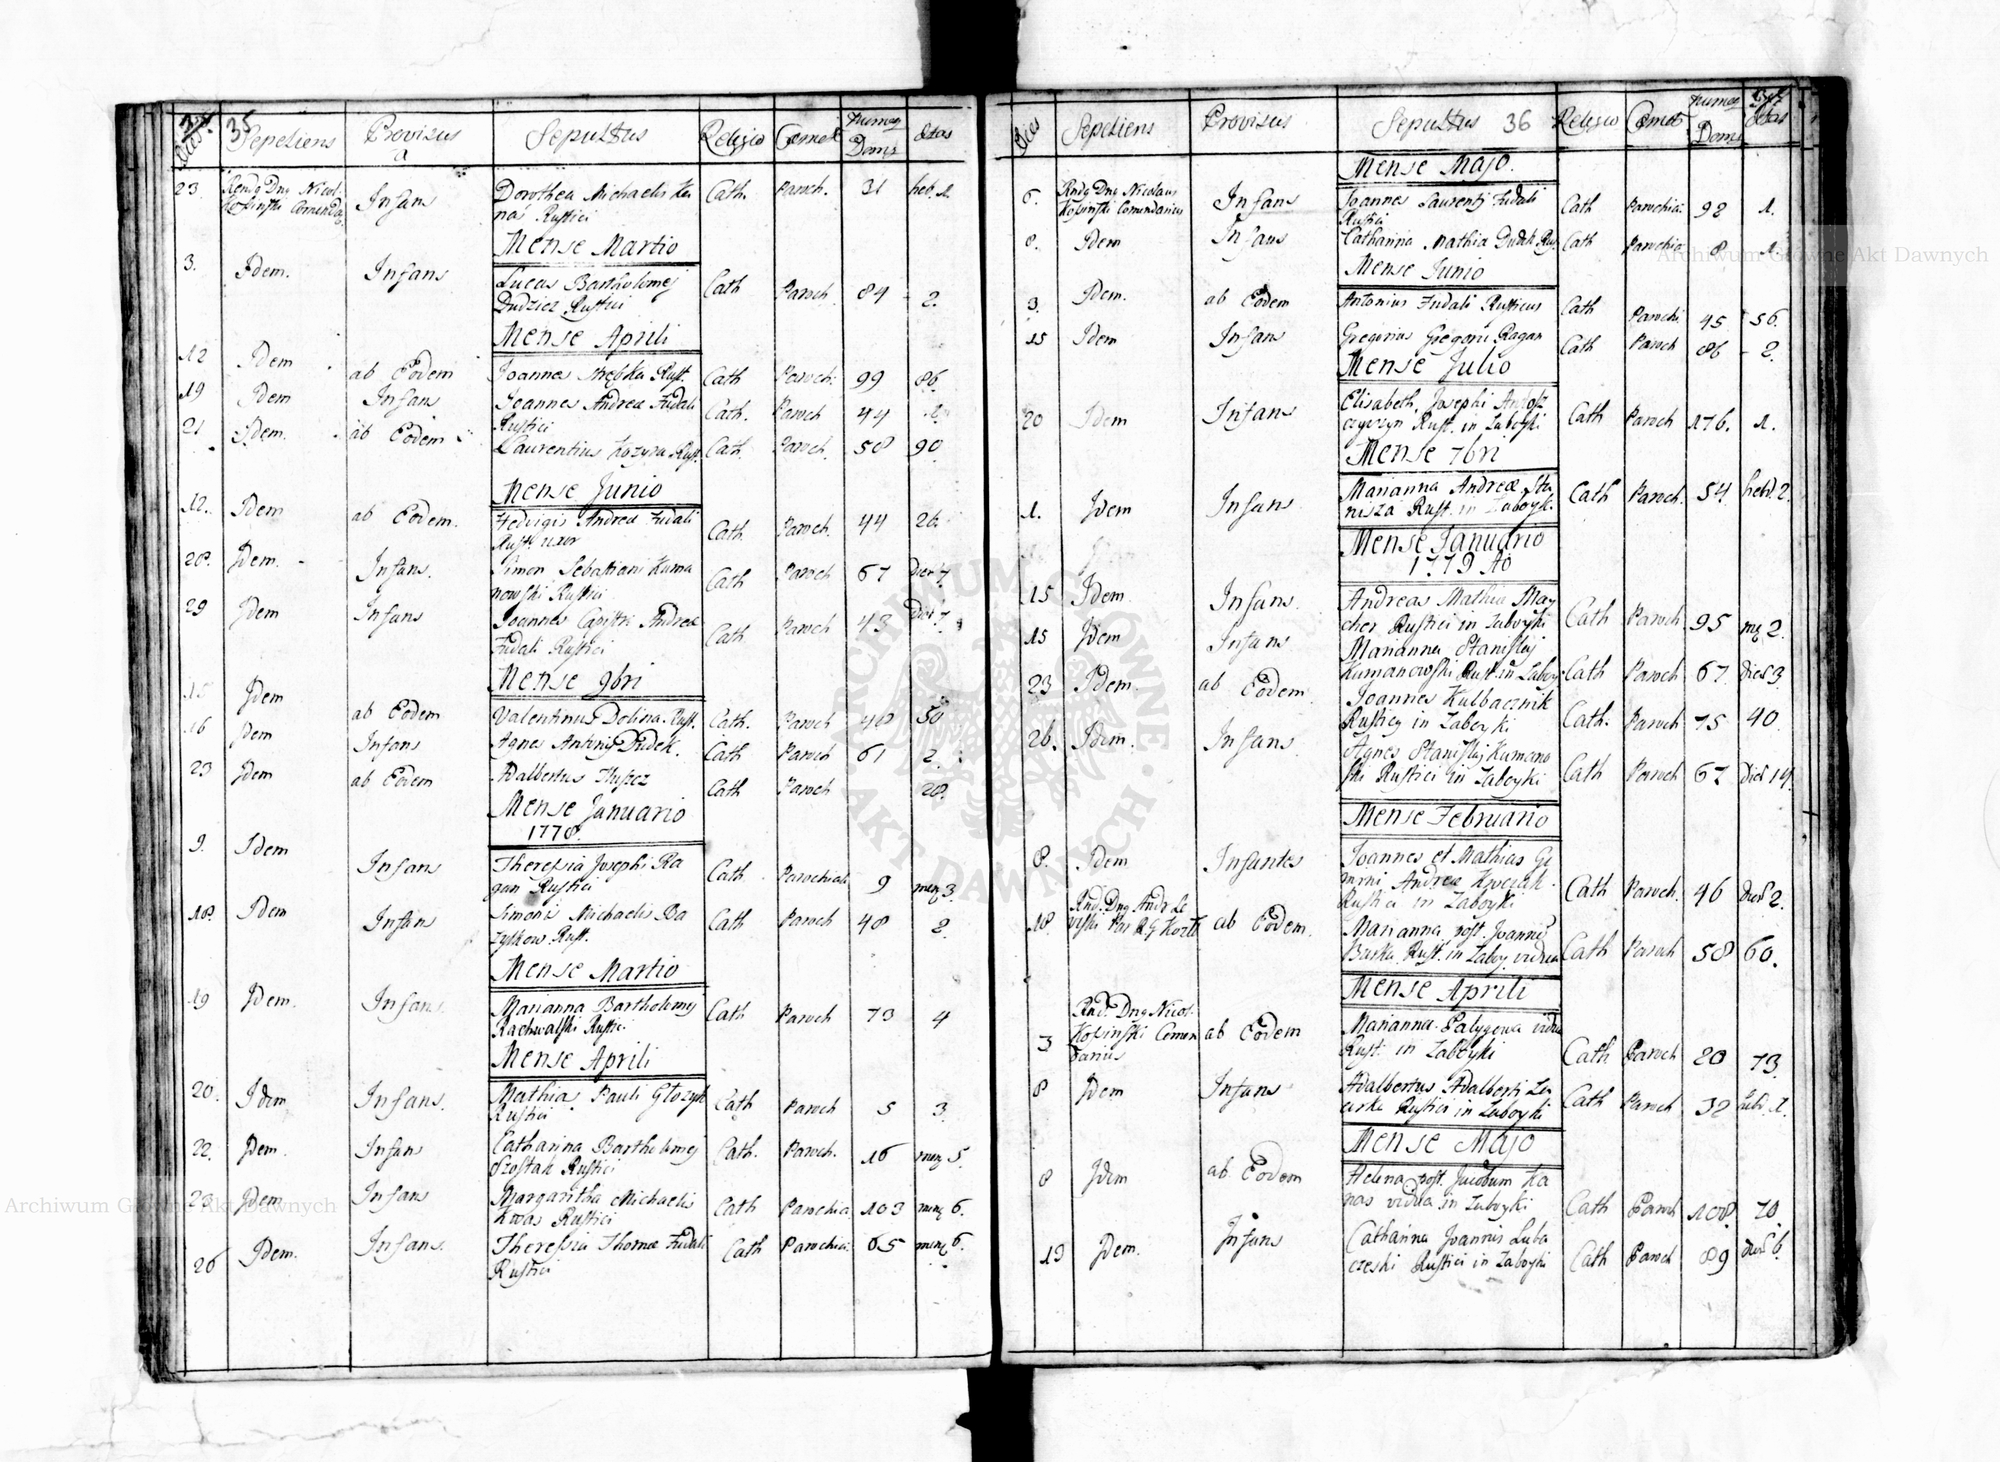 35
Dies Sepeliens Provisus a Sepultus Religio Cemet Numer Doms Etas
23 Rendg Dng Nicol. Infans Dorothea Michaelis Ka Cath. Paroch. 31 heb. 1.
Kosinski Comendag nas Rustici
Mense Martio
3. Idem. Infans Lucas Bartholomej Cath Paroch 84 2.
Dudzicz Rustici
Mense Aprili
12 Idem ab Eodem Joannes Skrębka Rust. Cath Paroch. 99 86.
19 Idem Infans Joannes Andrea Fudali Cath. Paroch 44
Rustici
21 Idem. ab Eodem Laurentius Kozyra Rust. Cath. Paroch. 58 90
Mense Junio
12. Idem ab Eodem. Hedvigis Andrea Fudali Cath Paroch. 44 26.
Rust. uxor
28. Idem. Infans. Simon Sebastiani Kuma Cath Paroch 67 Dier 7.
nowski Rustici
29 Idem Infans Joannes Capistri Andrea Cath Paroch 43 Dier 7
Fudali Rustici
Mense 9bri
15 Idem ab Eodem Valentinus Dolina Rust. Cath. Paroch 40 50
16 Idem Infans Agnes Antonij Dudek. Cath Paroch 61 2.
23 Idem ab Eodem Adalbertus Cath Paroch 28.
Mense Januario
1778.
9. Idem Infans Theressia Josephi Ra Cath. Parochial 9 meng 3.
gan Rustici
18. Idem Infans Simoni Michaelis Ba Cath Paroch 48 2
zylkow Rust.
Mense Martio
19 Idem. Infans. Marianna Bartholomej Cath Paroch 73 4
Rachwalski Rustici
Mense Aprili
20. Idem Infans. Mathia Pauli Cath Paroch 5 3.
Rustici
22. Idem. Infans Catharina Bartholomej Cath. Paroch. 16 meng 5.
Szostak Rustici
23 Idem. Infans Margaritha Michaelis Cath Parochia 103 meng 6.
Kwas Rustici
26 Idem. Infans. Theressia Thomæ Fudali Cath Parochia: 65 meng 6.
Rustici
Dies Sepeliens Provisus Sepultus 36 Religio Cemet Numer Doms Etas
Mense Majo.
6. Rndg Dng Nicolaus Infans Joannes Laurentj Fudali Cath Parochia: 92 1.
Kosinski Comendarius Rustici
8. Idem Infans Catharina Mathia Dudek Rus. Cath Parochia 8 1.
Mense Junio
3. Idem. ab Eodem Antonius Fudali Rusticus Cath Parochi 45 56.
15 Idem Infans Gregorius Gregorii Ragan Cath Paroch 86 2.
Mense Julio
20 Idem Infans Elisabeth Josephi Antosz Cath Paroch 176. 1.
czyszyn Rust. in Zaboyki
Mense 7bri
1. Idem Infans Marianna Andreæ Sta Cath Paroch. 54 hebd. 2.
nisza Rust. in Zaboyk.
Mense Januario
1779 Ao
15 Idem. Infans. Andreas Mathia May Cath Paroch 95 mg 2.
cher Rustici in Zaboyki
15 Idem Infans Marianna Stanislaj Cath Paroch 67 Dies 3.
Kumanowski Rust. in Zaboy
23 Idem. ab Eodem Joannes Kulbacznik Cath. Paroch. 75 40
Rusticg in Zaboyki
26. Idem. Infans Agnes Stanislaj Kumano Cath Paroch 67 Dies 14.
ski Rustici in Zaboyki
Mense Februario
8. Idem Infantes Joannes et Mathias Ge Cath Paroch. 46 Dies 2.
mini Andrea Kwczak
Rustici in Zaboyki
18. Rnd. Dng Andr Le ab Eodem. Marianna post Joannis Cath Paroch 58 60.
Baska Rust. in Zaboy. vidua
Mense Aprili
3 Rnd. Dng Nicol. ab Eodem Marianna Palygowa vidua Cath Paroch 20 73.
Kosinski Comen Rust. in Zaboyki
darius
8 Idem Infans Adalbertus Adalberti Cath Paroch 32
Rustici in Zaboyki
Mense Majo
8 Idem ab Eodem Helena post Jacobum Ka Cath Paroch 108. 70.
nas vidua in Zaboyki
19 Idem. Infans Catharina Joannis Luba Cath Paroch 89 dies 6.
czeski Rustici in Zaboyki
Archiwum Główne Akt Dawnych
Archiwum Główne Akt Dawnych
ARCHIWUM GŁÓWNE AKT DAWNYCH